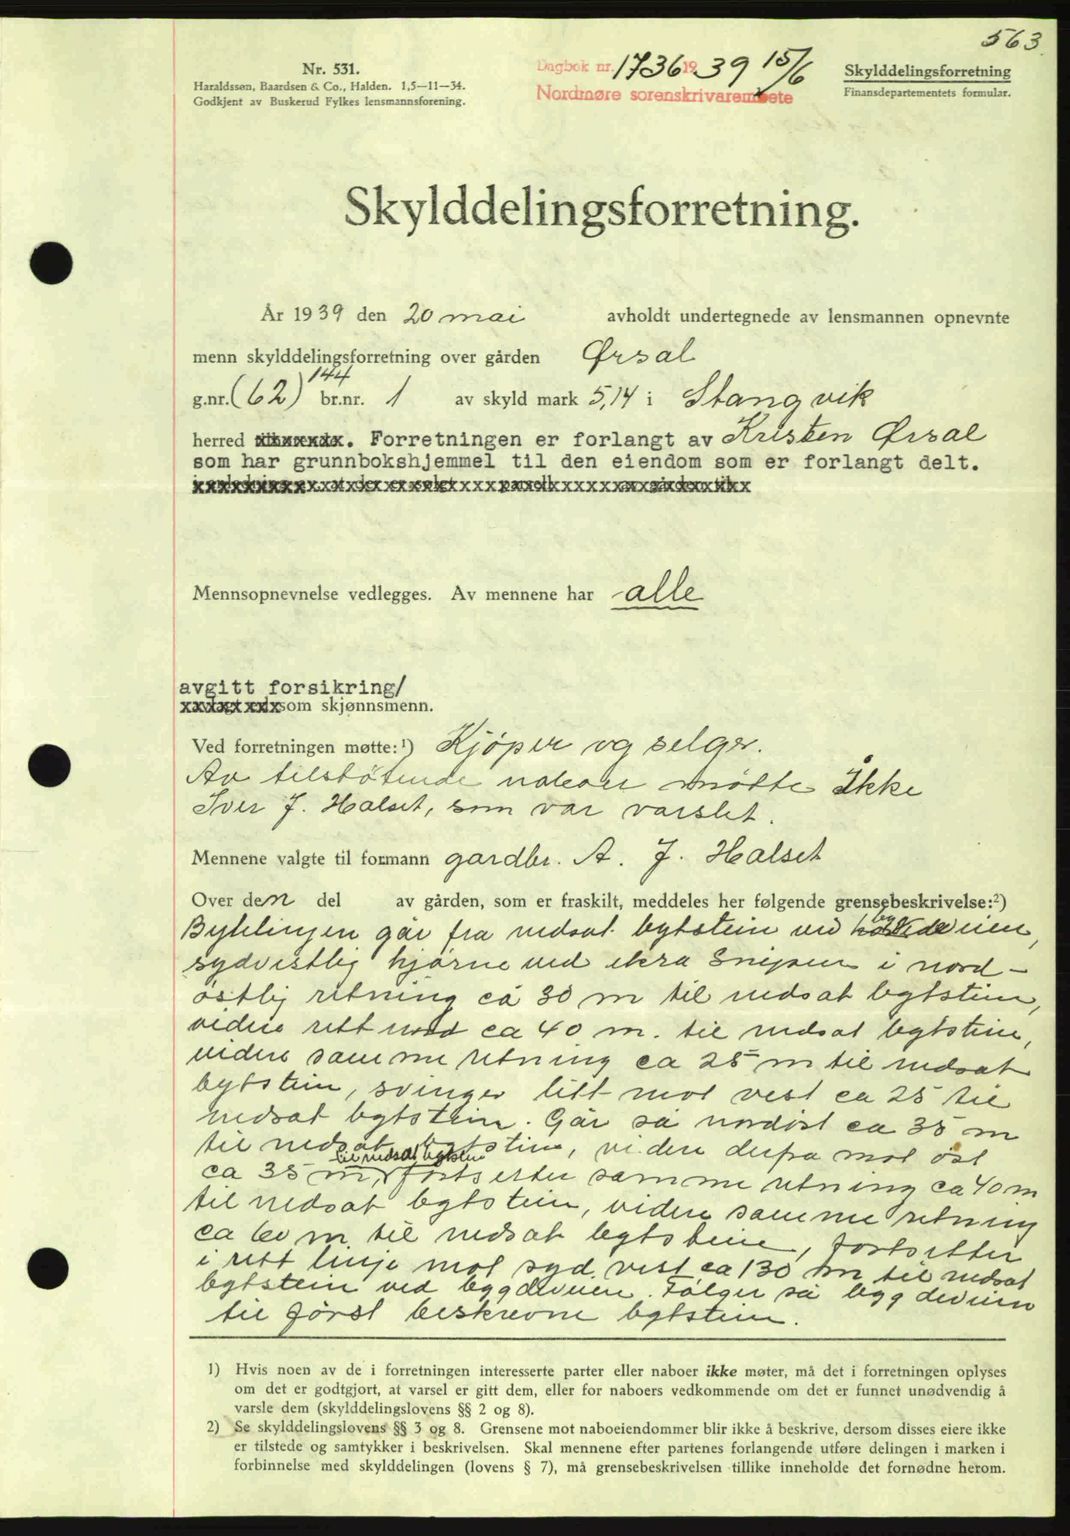 563
Nr. 531.
Haraldssøn, Baardsen & Co., Halden. 1,5—11—34.
Godkjent av Buskerud Fylkes lensmannsforening.
Dagbok nr. 1736 1939 15/6
Nordmøre sorenskrivarembete
Skylddelingsforretning
Finansdepartementets formular.
Skylddelingsforretning.
År 1939 den 20 mai avholdt undertegnede av lensmannen opnevnte
menn skylddelingsforretning over gården Ørsal
144
g.nr. (62) br.nr. 1 av skyld mark 5,14 i Stangvik
herred. Forretningen er forlangt av Kristen Ørsal
som har grunnbokshjemmel til den eiendom som er forlangt delt.
Mennsopnevnelse vedlegges. Av mennene har alle
avgitt forsikring/
som skjønnsmenn.
Ved forretningen møtte:¹) Kjøper og selger.
Av tilstøtende naboer møtte Ikke
Iver J. Halset, som var varslet.
Mennene valgte til formann gardbr. A. J. Halset
Over den del av gården, som er fraskilt, meddeles her følgende grensebeskrivelse:²)
Bytelinjen går fra nedsat bytstein ved bygdeveien,
sydvestlig hjørne ved ekra Snipen i nord-
østlig retning ca 30 m til nedsat bytstein,
videre rett nord ca 40 m. til nedsat bytstein,
videre samme retning ca 25 m til nedsat
bytstein, svinger litt mot vest ca 25 til
nedsat bytstein. Går så nordøst ca 35 m
til nedsat bytstein, videre derfra mot øst
ca 35 m, til nedsat bytstein fortsetter samme retning ca 40 m
til nedsat bytstein, videre samme retning
ca 60 m til nedsat bytstein, fortsetter
i rett linje mot syd vest ca 130 m til nedsat
bytstein ved bygdeveien. Følger så bygdeveien
til først beskrevne bytstein.
1) Hvis noen av de i forretningen interesserte parter eller naboer ikke møter, må det i forretningen oplyses
om det er godtgjort, at varsel er gitt dem, eller for naboers vedkommende om det er funnet unødvendig å
varsle dem (skylddelingslovens §§ 2 og 8).
2) Se skylddelingslovens §§ 3 og 8. Grensene mot naboeiendommer blir ikke å beskrive, dersom disses eiere ikke
er tilstede og samtykker i beskrivelsen. Skal mennene efter partenes forlangende utføre delingen i marken i
forbinnelse med skylddelingen (lovens § 7), må grensebeskrivelsen tillike inneholde det fornødne herom.